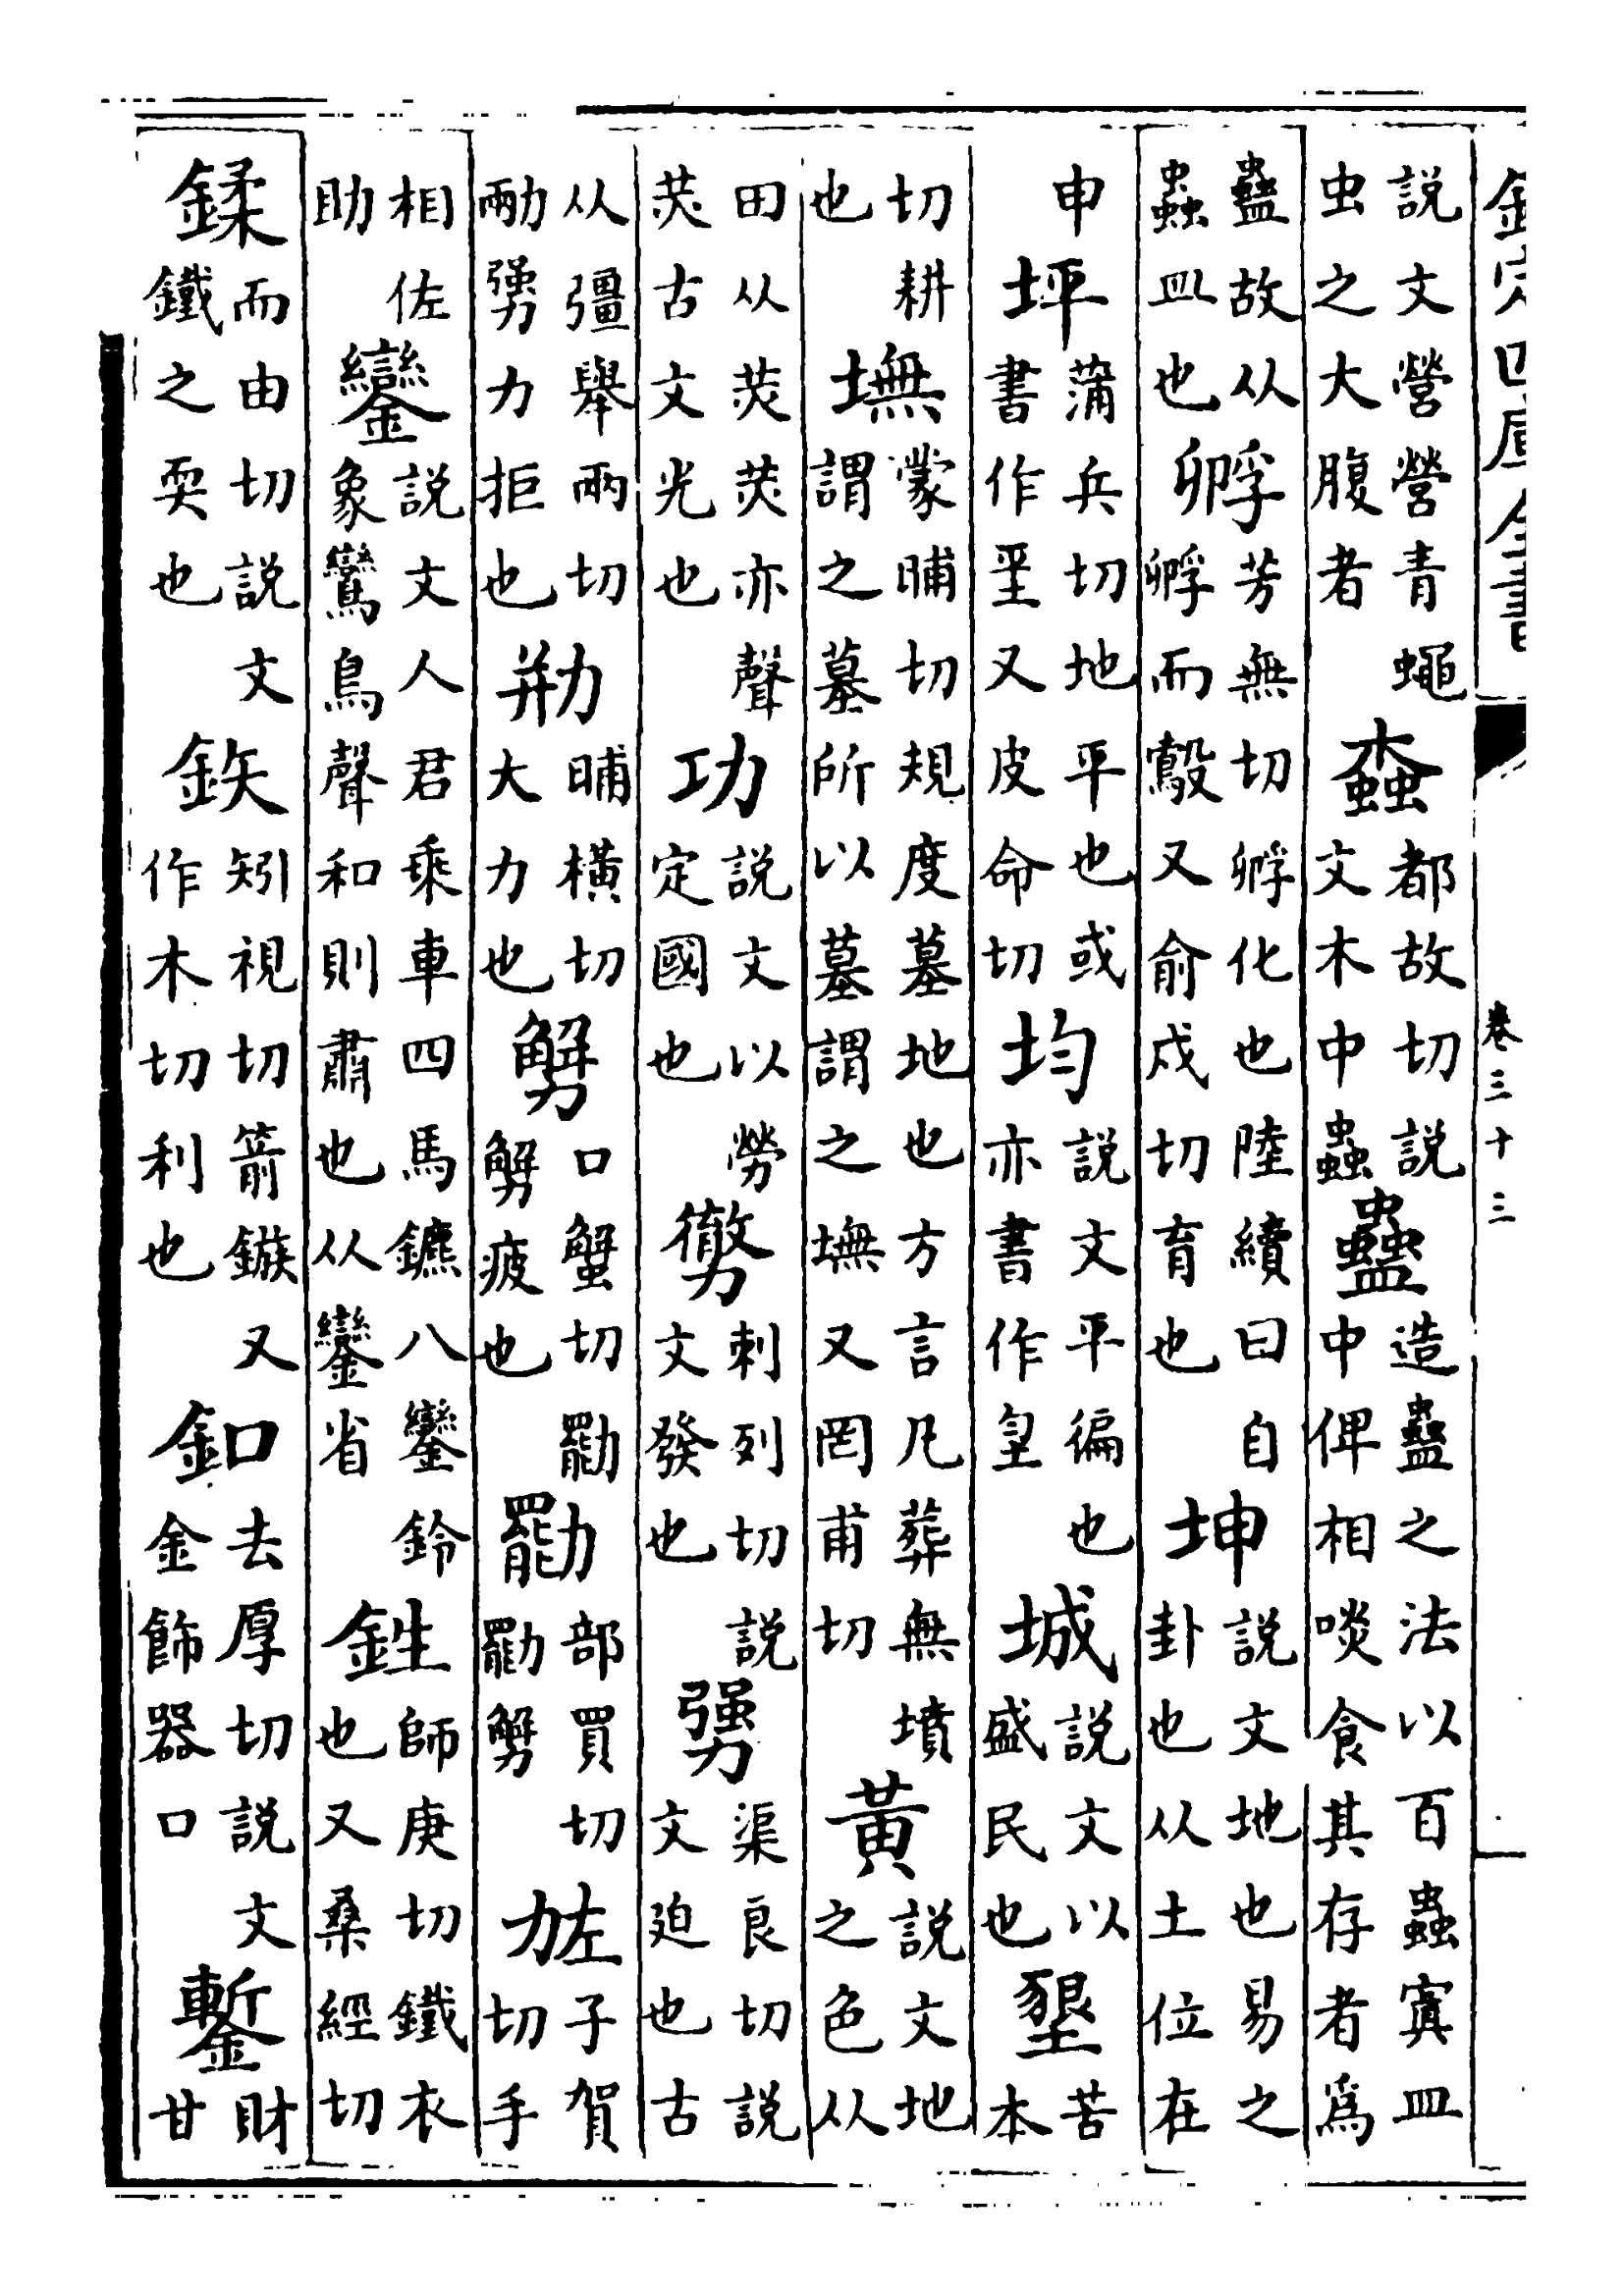 欽定四庫全書
卷三十三
說文營營青蠅
虫之大腹者
螙
都故切說
文木中蟲
蠱
造蠱之法以百蟲寘皿
中俾相啖食其存者為
蠱故从
蟲皿也
孵
芳無切孵化也陸續曰自
孵而鷇又俞戍切育也
坤
說文地也易之
卦也从土位在
申
坪
蒲兵切地平也或
書作又皮命切
均
說文平徧也
亦書作
城
說文以
盛民也
墾
苦
本
切耕
也
墲
蒙晡切規度墓地也方言凡葬無墳
謂之墓所以墓謂之墲又罔甫切
黃
說文地
之色从
田从炗炗亦聲
炗古文光也
功
說文以勞
定國也
勶
刺列切說
文發也
勥
渠良切說
文迫也古
从彊舉兩切
勥力拒也
晡橫切
大力也
口蟹切
疲也
部買切
㔫
子賀
切手
相佐
助
鑾
說文人君乘車四馬鑣八鑾鈴
象鸞鳥聲和則肅也从鑾省
鉎
師庚切鐵衣
也又桑經切
鍒
而由切說文
鐵之耎也
鉃
矧視切箭鏃又
作木切利也
釦
去厚切說文
金飾器口
鏨
財
甘